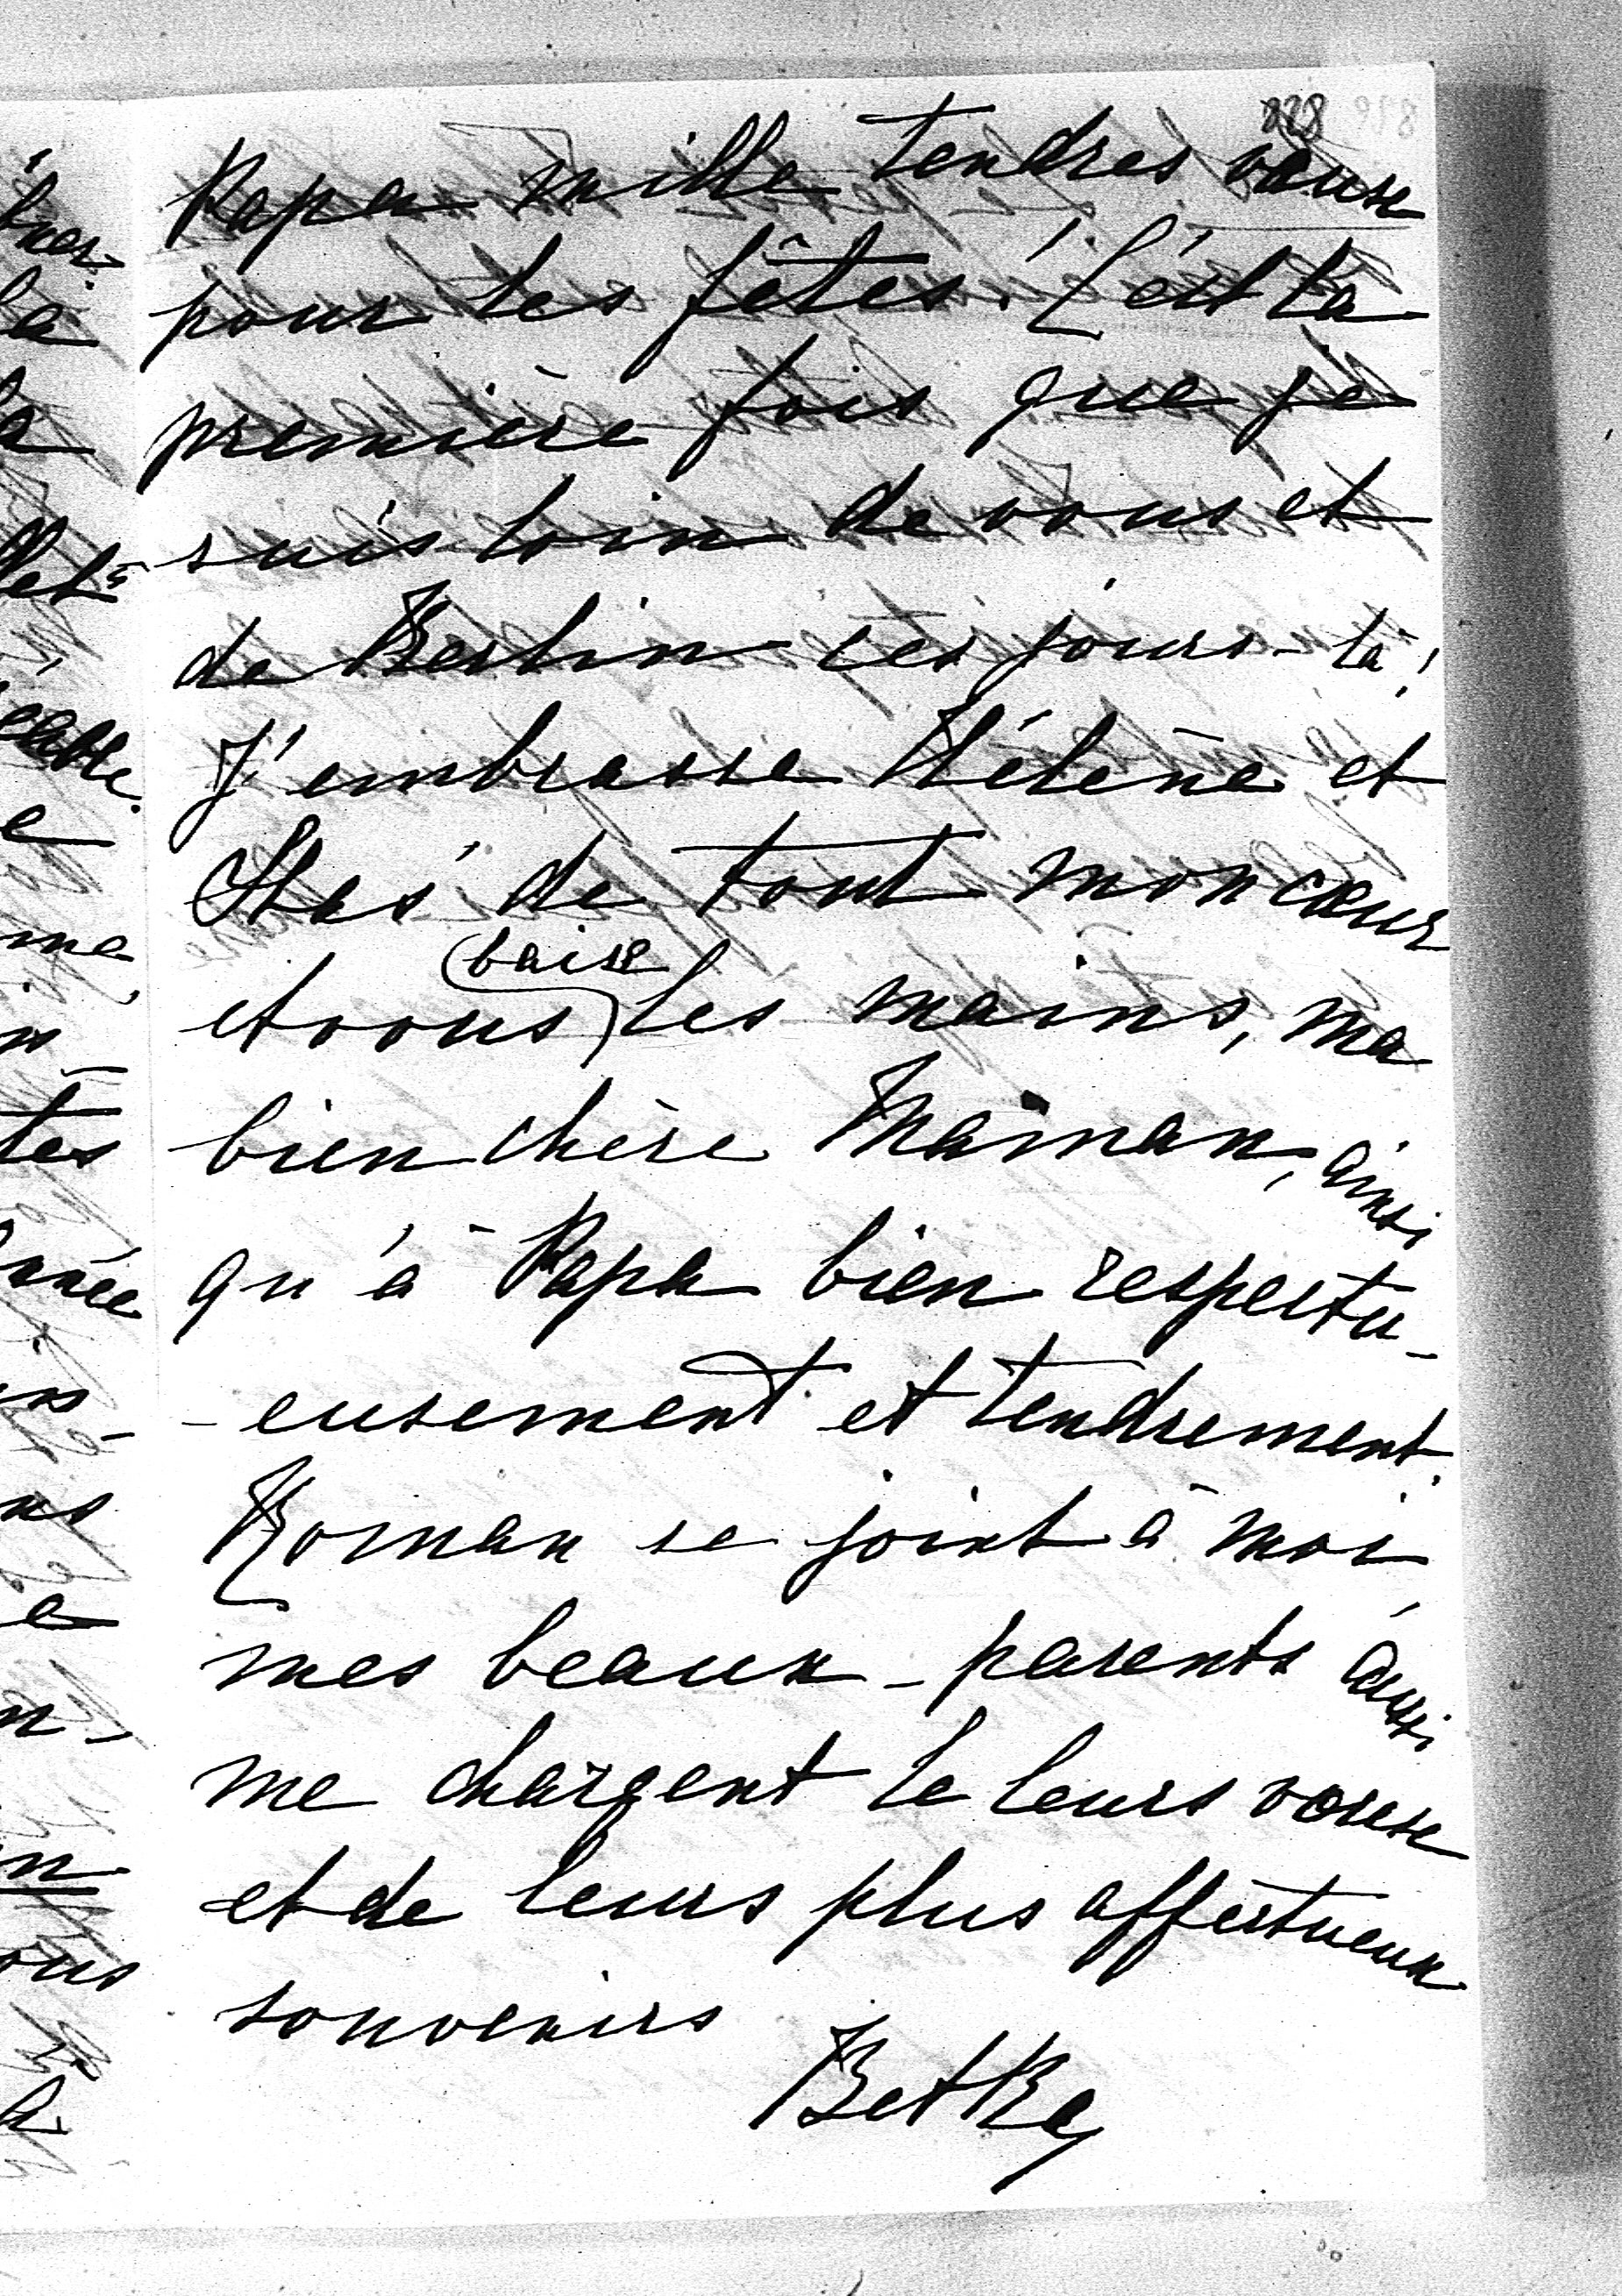 828
Papa mille tendres vœux
pour les fêtes. C'est la
première fois que je
suis loin de vous et
de Berlin ces jours-là!
J'embrasse Hélène et
Stas' de tout mon cœur
et vous baise les mains, ma
bien chère Maman, ainsi
qu'à Papa bien respectu-
-eusement et tendrement.
Roman se joint à moi,
mes beaux-parents aussi
me chargent de leurs vœux
et de leurs plus affectueux
souvenirs